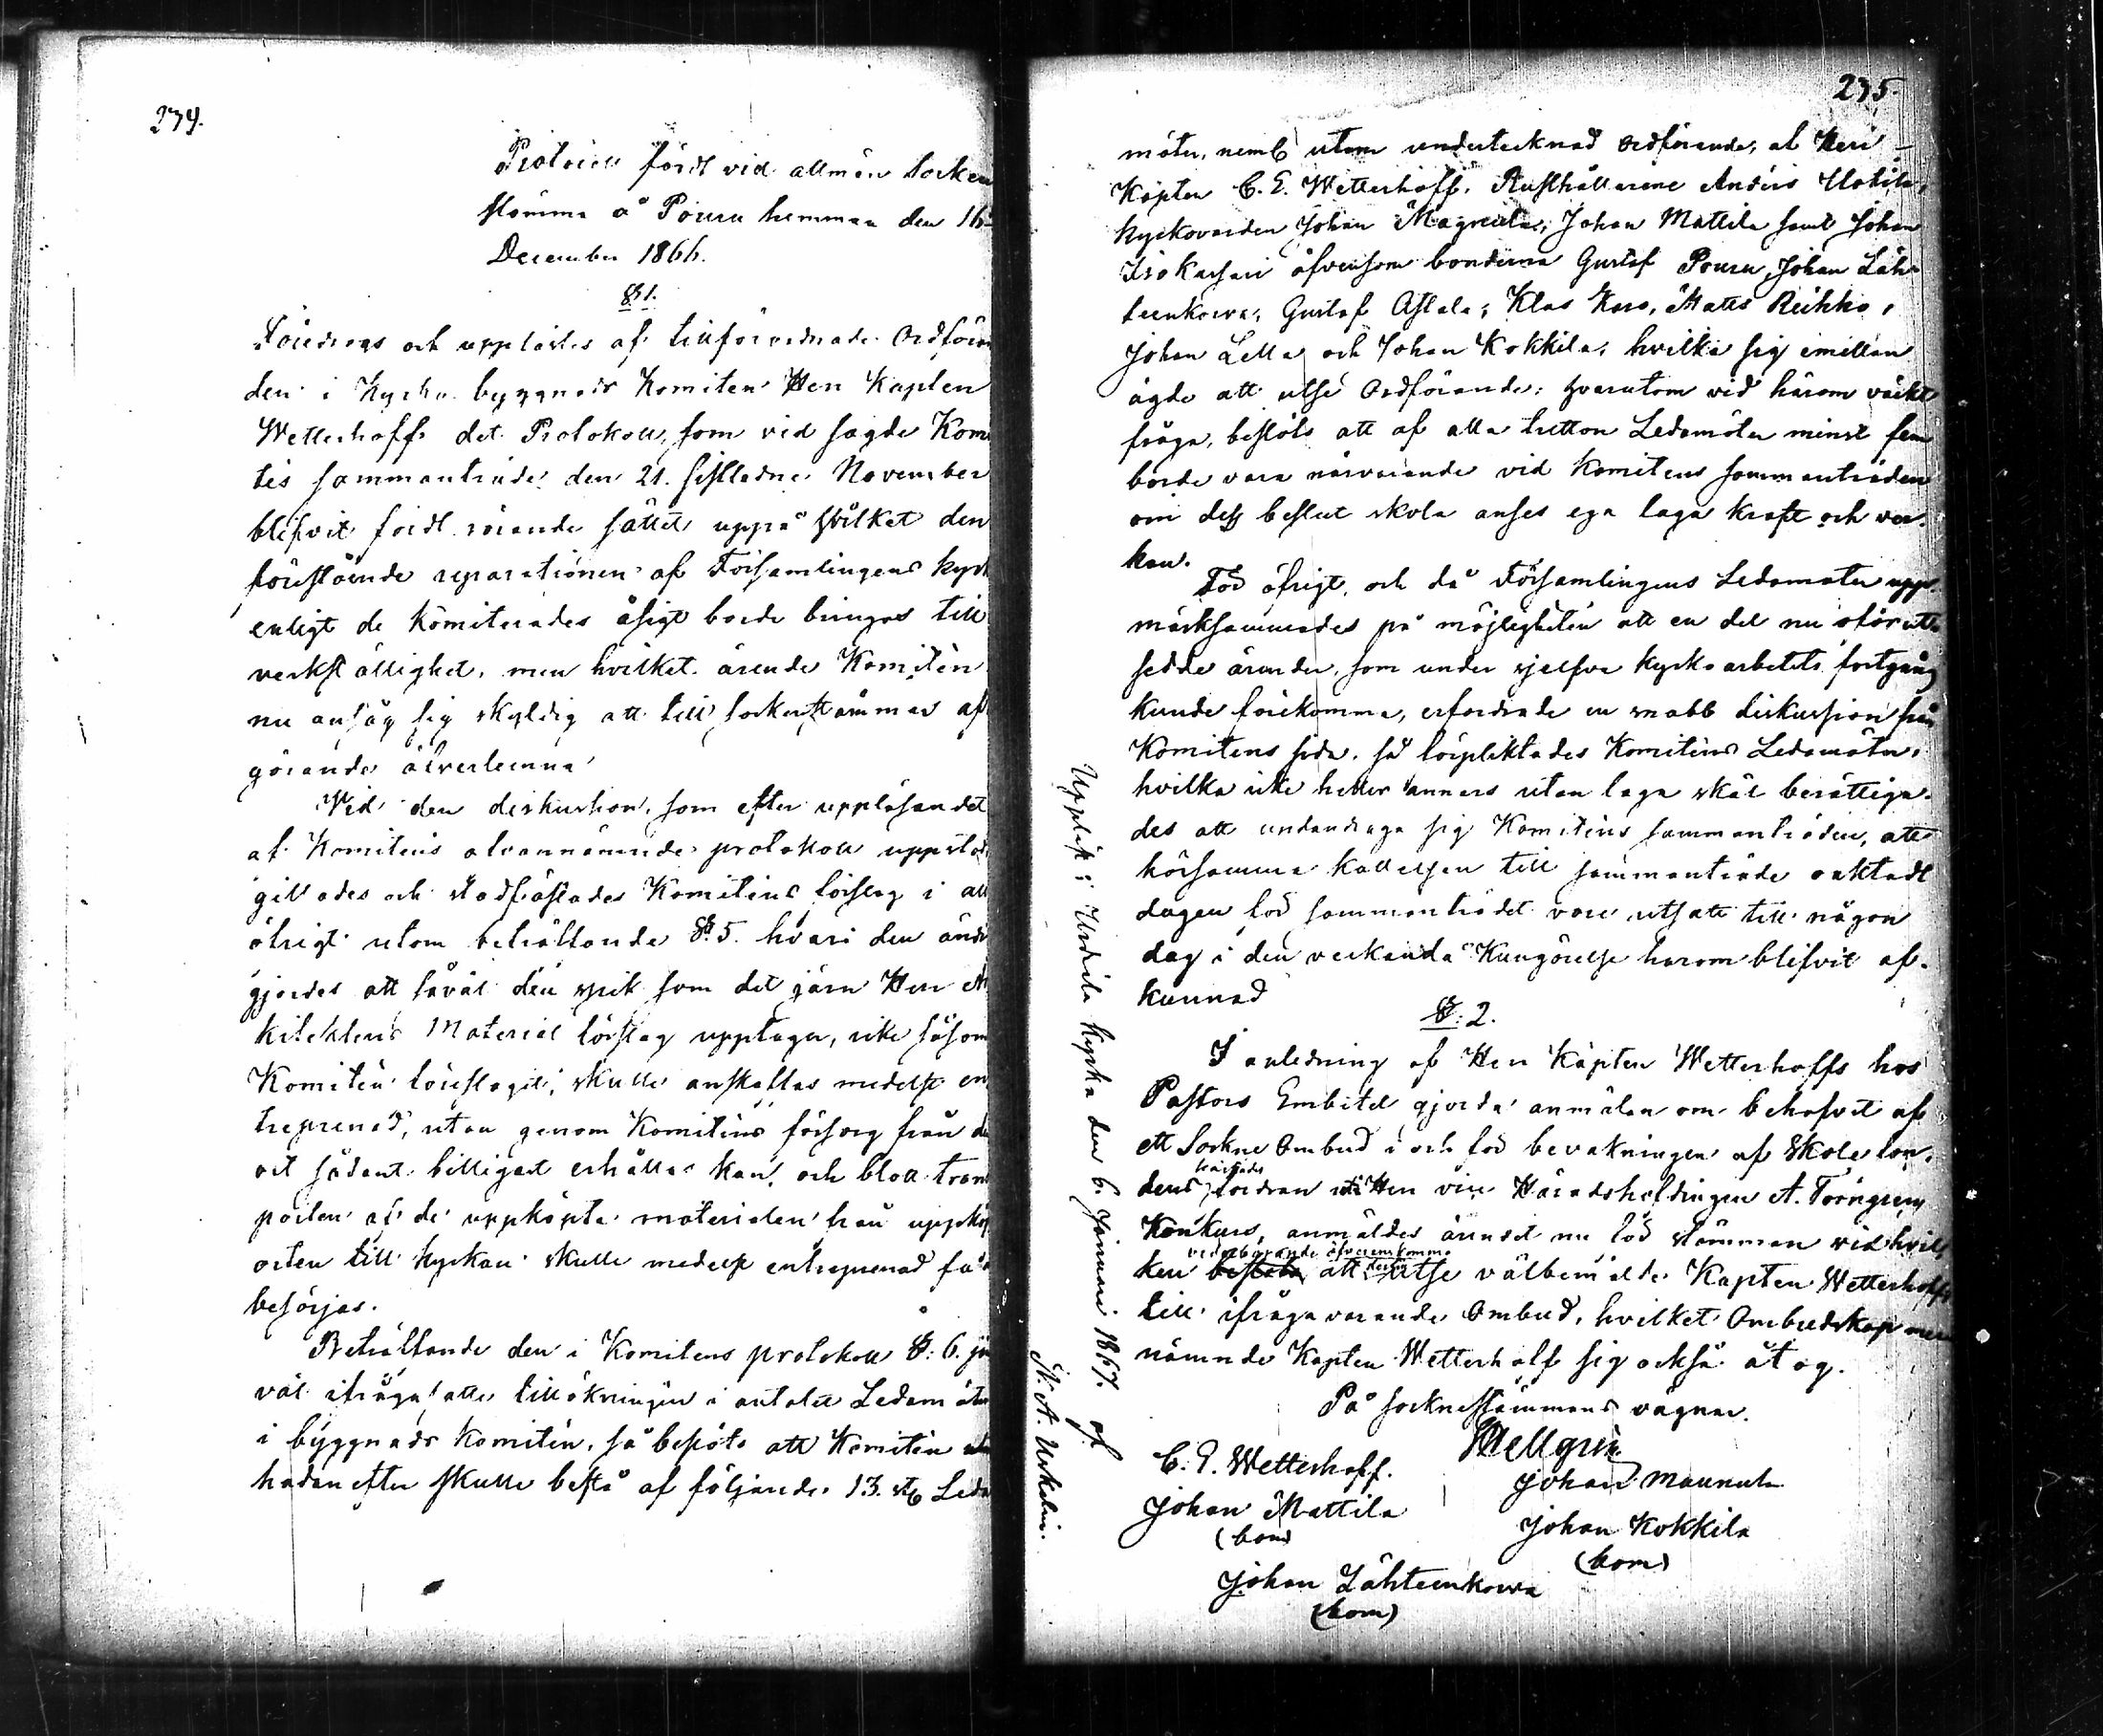 234.
Protocoll fördt vid allmän Socken
stämma å Pouru hemman den 16
December 1866.
§ 1.
Föredrogs och upplästes af tillförordnade Ordföran
den i Kyrko byggnads Komitén Herr Kapten
Wetterhoff det Protokoll, som vid sagde Komi
tés sammanträde den 21. sistledne November
blifvit fördt rörande sättet uppå hvilket den
förestående reparationen af Församlingens kyrk
enligt de Komiterades åsigt borde bringas till
verkställighet, men hvilket ärende Komitén
nu ansåg sig skyldig att till sockenstämmas af
görande öfverlemna
Vid den diskussion, som efter uppläsandet
af Komiténs ofvannämnde protokoll uppstod
gillades och stadfästades Komiténs förslag i all
öfrigt utom beträffande §. 5. hvari den ändr
gjordes att såväl den spik som det järn Herr Ar
kitektens Material förslag upptager, icke såsom
Komitén föreslagit, skulle anskaffas medelst en
treprenad, utan genom Komiténs försorg från d
ort sådant billigast erhållas kan, och blott trans
porten af de uppköpta materialen från uppköp
orten till kyrkan skulle medelst entreprenad få
besörjas.
Beträffande den i Komitens protokoll §: 6. jem
väl ifrågasatte tillökningen i antalet Ledamöter
i byggnads Komitén, så beslöts att Komitén
hädanefter skulle bestå af följande 13. st Leda
235.
möter, neml utom undertecknad Ordförande, af Herr
Kapten C. E. Wetterhoff, Rusthållarene Anders
kyrkovärden Johan Magnula, Johan Mattila samt Johan
Isokarsari äfvensom bönderna Gustaf Pouru, Johan Läh
teenkorva, Gustaf Astala, Klas Karo, Matts Reikko,
Johan Lella och Johan Kokkila, hvilka sig emellan
ägde att utse Ordförande; hvarutom vid härom väckt
fråga, beslöts att af alla tretton Ledamöter minst fem
borde vara närvarande vid Komitens sammanträden
om dess beslut skola anses ega laga kraft och ver-
kan.
För öfrigt, och då Församlingens Ledamöter upp-
märksammades på möjligheten att en del nu oförut
sedde ärender, som under sjelfva kyrkoarbetets fortgång
kunde förekomma, erfordrade en snabb diskussion från
Komitens sida, så förpliktades Komiténs Ledamöter,
hvilka icke heller annars utan laga skäl berättiga-
des att undandraga sig Komiténs sammanträden, att
hörsamma kallelsen till sammanträde oaktadt
dagen för sammanträdet vore utsatt till någon
dag i den veckan då Kungörelse härom blifvit af-
kunnad
§: 2.
I anledning af Herr Kapten Wetterhoffs hos
Pastors Embetet gjorda anmälan om behofvet af
ett Sockne Ombud i och för bevakningen af Skolefon-
dens bevakade fordran i Herr vice Häradshöfdingen A. Törngrens
Konkurs, anmäldes ärendet nu för stämman vid hvil
ken beslöts vederbörande öfverenskommo att dertill utse välbemälde Kapten Wetterhoff
till ifrågavarande Ombud, hvilket Ombudskap
nämnde Kapten Wetterhoff sig också åtog.
På sockne stämmans vägnar.
Wellgren.
C. E. Wetterhoff.
Johan Maunula
Johan Mattila
(bom)
Johan Kokkila
(bom)
Johan Lähteenkorva
(bom)
Uppläst i Urdiala kyrka den 6. Januari 1867. af